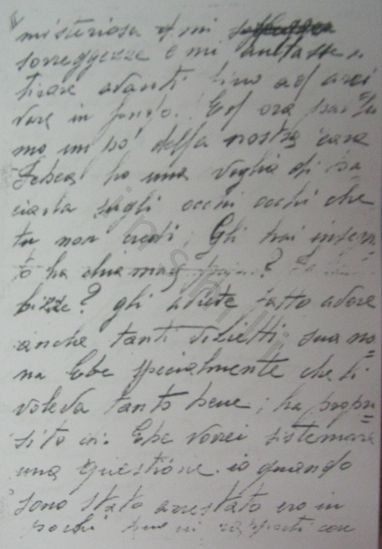 misteriosa che mi
sorreggesse e mi aiutasse a
tirare avanti fino ad arri
vare in fondo. Ed ora parlia
mo un po' della nostra cara
ho una voglia di ba
ciarla sugli occhi occhi che
tu non credi; Gli hai
to ha
bizze? gli avete fatto avere
anche tanti diletti, sua no=
na Ebe specialmente che li
voleva tanto bene; ha propo=
sito di Ebe vorei sistemare
una questione. io quando
sono stato arrestato ero in
pochi rapporti con